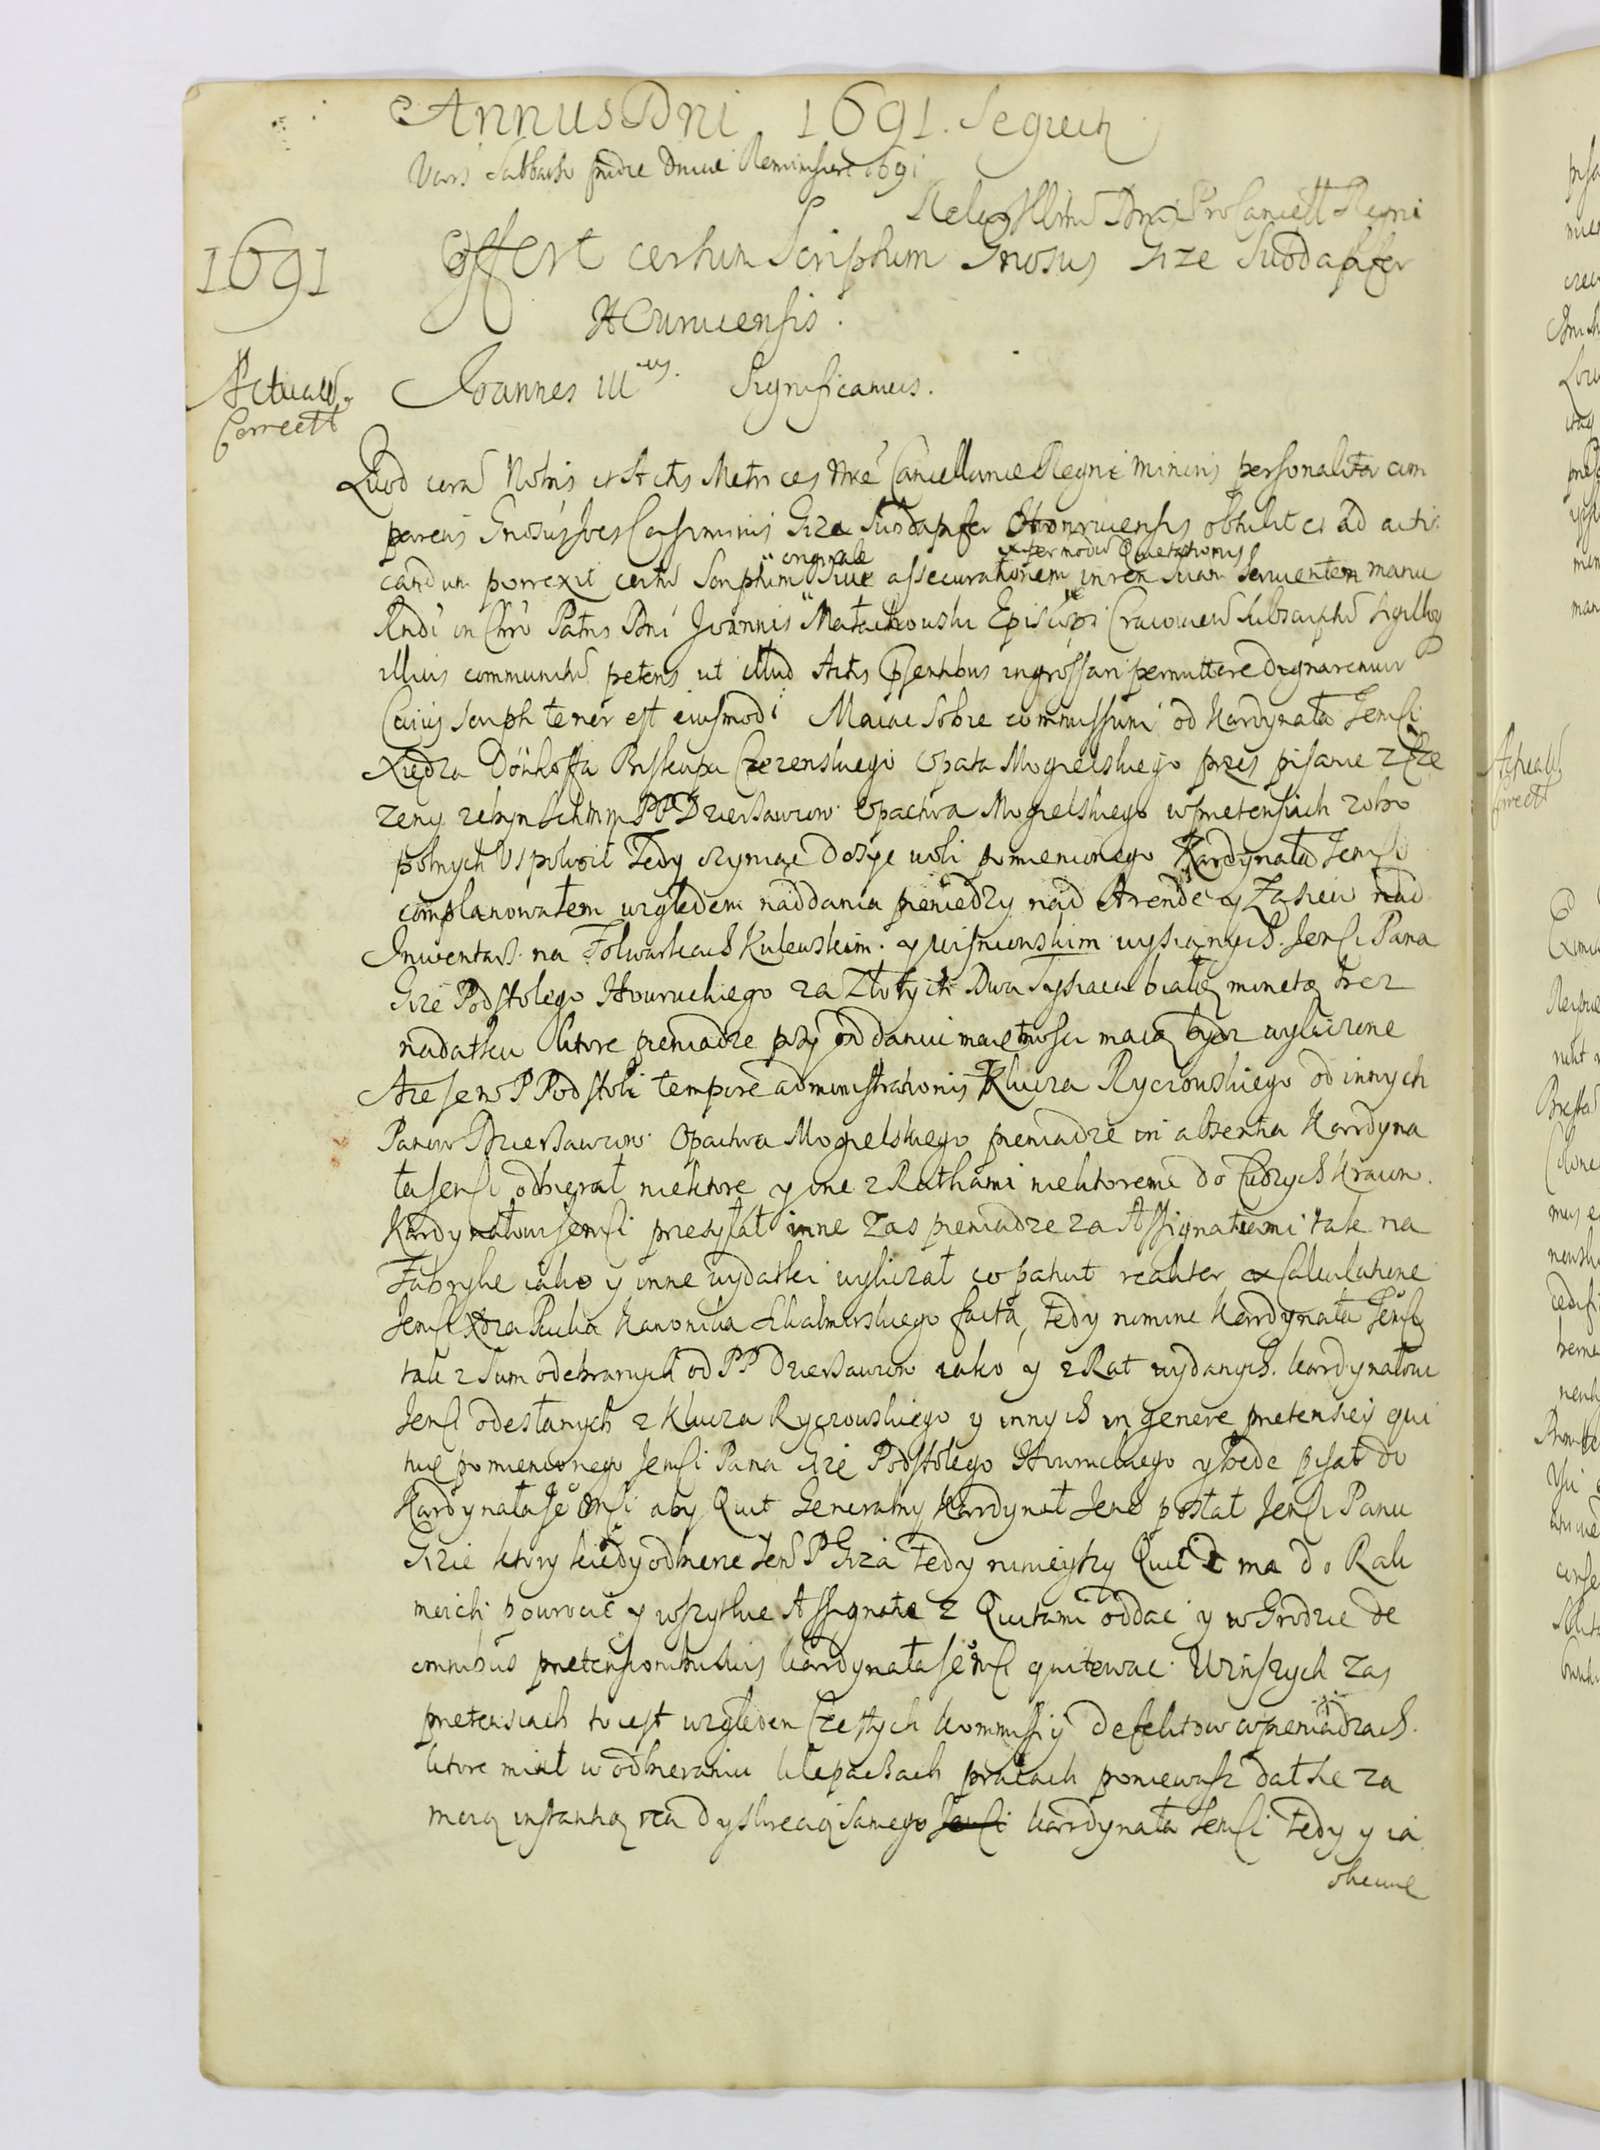 Annus Dni 1691. Sequit
Vars Sabbatho pridie Dnicae Reminiscere 1691
Relao Illmi Dmi ProCancell Regni
1691
Offert certum Scriptum Gnosus Gize Subdapifer
HOwruensis.
Actuals
Correctt
Joannes IIIus. Significamus.
Quod cora Nobis et Actis Metrices nrae Cancellariae Regni minoris personaliter com
parens Gnosus Joes Casimirus Giza Subdapifer Howruensis obtulit et ad acti
candum porrexit certu Scriptum originale Siue assecurationem ex per modu Quietationis in rem suam seruientem manu
Rndi in Chro Patris Dni Joannis Małachowski Episcopi Cracouien subscriptu Sigilloq
illius communitu petens ut illud Actis Psentibus ingrossari permittere dignaremur
Cuius Script tenor est eiusmodi Maiac sobie commissum od Kardynała Jemsci
Xiędza Dönhoffa Biskupa Cezenskiego Opata Mogielskiego przes pisanie z Cze
zeny zebym Ichmm PP Dzierzawcow Opactwa Mogielskiego w pretensiach zobo
polnych Uspokoił Tedy czyniąc dosyc woli pomienionego Kardynała Jemsci
complanowałem względem naddania pieniedzy nad Arendę y Zasiew nad
Inwentarz na Folwarkach Kulewskim y wisniowskim wysianych Jemsci Pana
Gize Podstolego Howruckiego za Złotych Dwa Tysiaca białą monetą bez
nadatku ktore pieniadze przy oddaniu maiętnosci maią bydz wyliczone
Aze Jemo P Podstoli tempore administrationis Klucza Ryczowskiego od innych
Panow Dzierzawcow Opactwa Mogielskiego pieniadze in absentia Kardyna
ła Jemsci odbierał niektore y one z Rathami niektoremi do Cudzych Kraiow
Kardynałowi Jemsci przesyłał inne zas pieniadze za Assignatiami tak na
Fabrykę iako y inne wydatki wyliczał co patuit realiter ex Calculatione
Jemsci Xdza Kanonika Skalmirskiego facta, tedy nomine Kardynała Jemsci
tak z Sum odebranych od PP Dzierzawcow iako y z Rat wydanych Kardynałowi
Jemsci odesłanych z Klucza Ryczowskiego y innych in genere pretensiey qui
tuię pomienionego Jemsci Pana Gizę Podstolego Howruckiego y będę pisał do
Kardynała Jemsci aby Quit Generalny Kardynał Jemo posłał Jemsci Panu
Gizie ktory kiedy odbierze Jem P Giza tedy ninieyszy Quit ma do Rąk
moich powrocic y wszytkie Assignatie z Quitami oddac y w Grodzie de
omnibus pretensionibus suis Kardynała Jemsci quitowac Winszych zas
pretensiach to iest względem Częstych kommissiy defektow w pieniądzach
ktore miał w odbieraniu kłopaczach pracach poniewasz dał sie za
moią instantią na dyskrecią samego Jemsci kardynała Jemsci tedy y ia